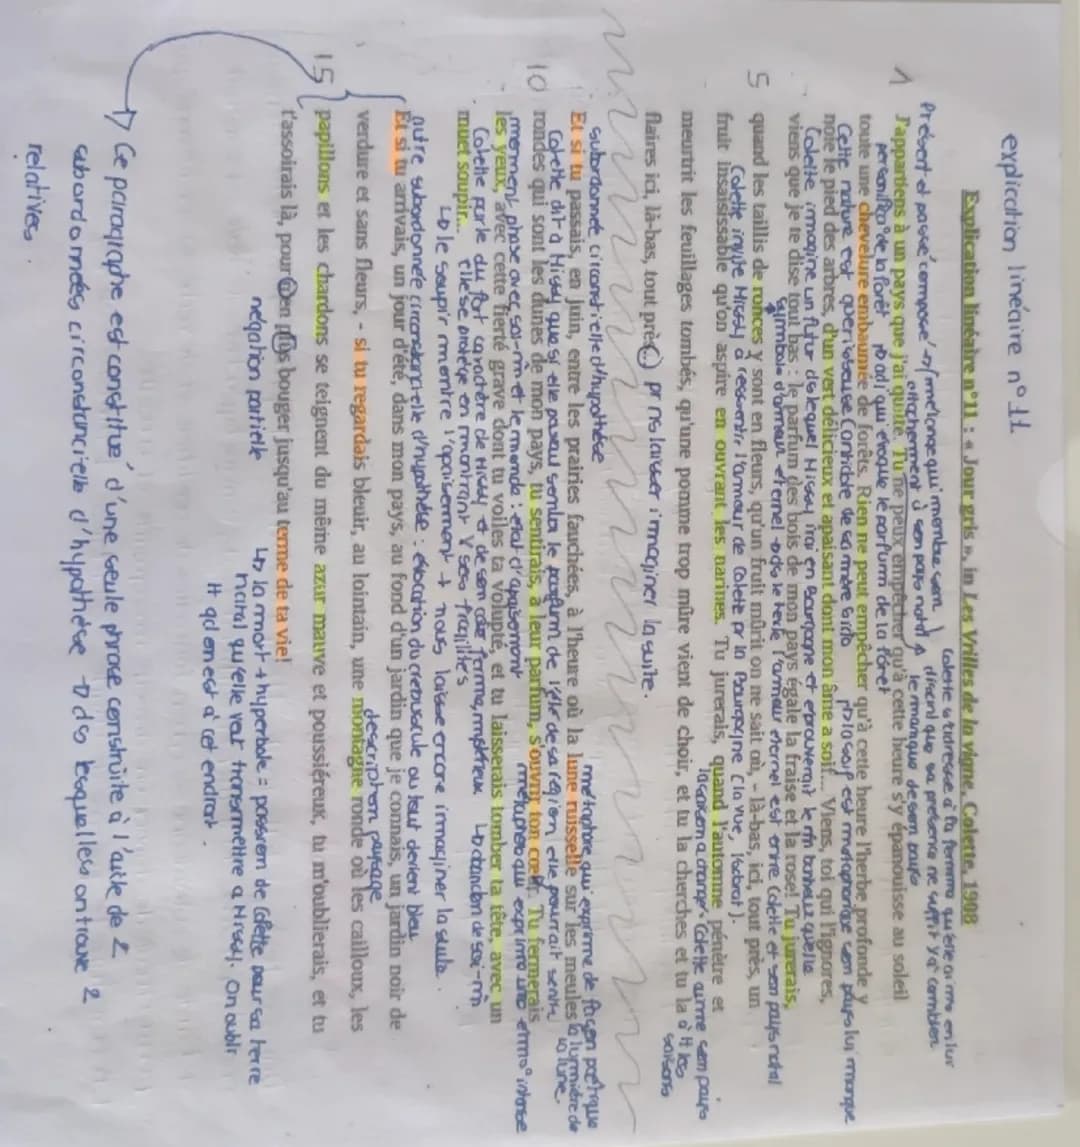 explication linéaire n°11
Explication linéaire n°11 : « Jour gris », in Les Vrilles de la vigne, Colette, 1908
Colette s'adresse à la femme
Présent et passé composé
1 J'appartiens à un pays que j'ai quitté. Tu ne peux empêcher qu'à cette heure s'y épanouisse au soleil
attachement à son pays natal
le manque de son pays
toute une chevelure embaumée de forêts. Rien ne peut empêcher qu'à cette heure l'herbe profonde y
de la forêt
qui évoque le parfum de la forêt
noie le pied des arbres, d'un vert délicieux et apaisant dont mon âme a soif... Viens, toi qui l'ignores,
Cette nature est
de sa mère Sido
son pays lui manque
viens que je te dise tout bas : le parfum des bois de mon pays égale la fraise et la rose! Tu jurerais,
Colette imagine un futur dslequel Missy irai en Bourgogne et
quand les taillis de ronces y sont en fleurs, qu'un fruit mûrit on ne sait où, - là-bas, ici, tout près, un
symbole d'amour éternel
l'amour éternel est entre Colette et son pays natal
5 fruit insaisissable qu'on aspire en ouvrant les narines. Tu jurerais, quand l'automne pénètre et
Colette invite Missy à ressentir l'amour de Colette pr la Bourgogne (la vue, l'odorat).
meurtrit les feuillages tombés, qu'une pomme trop mûre vient de choir, et tu la cherches et tu la
Colette aime son pays
à tt les saisons
flaires ici, là-bas, tout près(...) pr ns laisser imaginer la suite.
subordonné circonstielle d'hypothèse
métaphore qui exprime de façon poétique
la lumière de la lune.
Et si tu passais, en juin, entre les prairies fauchées, à l'heure où la lune ruisselle sur les meules
Colette dit à Missy que si elle passai sentir le parfum de
de sa région, elle pourrait sentir
10 rondes qui sont les dunes de mon pays, tu sentirais, à leur parfum, s'ouvrir ton cœur. Tu fermerais
moment phase avec soi-m et le monde : état d'apaisement
métaphore qui exprime une
intense
les yeux, avec cette fierté grave dont tu voiles ta volupté, et tu laisserais tomber ta tête, avec un
Colette parle du fort caractère de Missy et de son côté ferme,
abandon de soi-m
muet soupir...
elle se protège en montrant
ses fragilités
↳ le soupir montre l'apaisement → nous laisse encore imaginer la suite.
autre subordonnée
d'hypothèse : évocation du crépuscule ou tout devient bleu
Et si tu arrivais, un jour d'été, dans mon pays, au fond d'un jardin que je connais, un jardin noir de
description paysage
verdure et sans fleurs, - si tu regardais bleuir, au lointain, une montagne ronde où les cailloux, les
15 papillons et les chardons se teignent du même azur mauve et poussiéreux, tu m'oublierais, et tu
t'assoirais là, pour n'en plus bouger jusqu'au terme de ta vie!
négation partielle
↳ la mort + hyperbole = passion de Colette pour sa terre
natal qu'elle veut transmettre a Missy. On oublie
tt qd on est à cet endroit.
→ Ce paragraphe est constitué d'une seule phrase construite à l'aide de 2
subordonnées circonstancielle d'hypothèse → ds lesquelles on trouve 2
relatives.